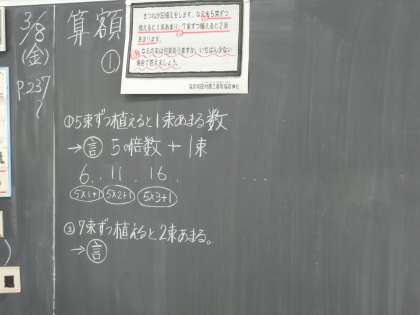 3/8
(金)
P237
算額
①
きつねが田植えをします。なえを5束ずつ
植えると1束あまり、7束ずつ植えると2束
あまります。
なえの束は何束ありますか。いちばん少ない
場合で答えましょう。
①5束ずつ植えると1束あまる数
→言 5の倍数+1束
6. 11. 16. ...
5×1+1 5×2+1 5×3+1
②7束ずつ植えると2束あまる。
→言